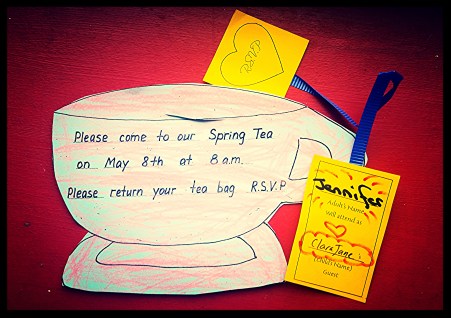 RSVP
Please come to our Spring Tea
on May 8th at 8 a.m.
Please return your tea bag R.S.V.P
Jennifer
Adult's Name
will attend as
Clara Jane's
(Child's Name)
Guest